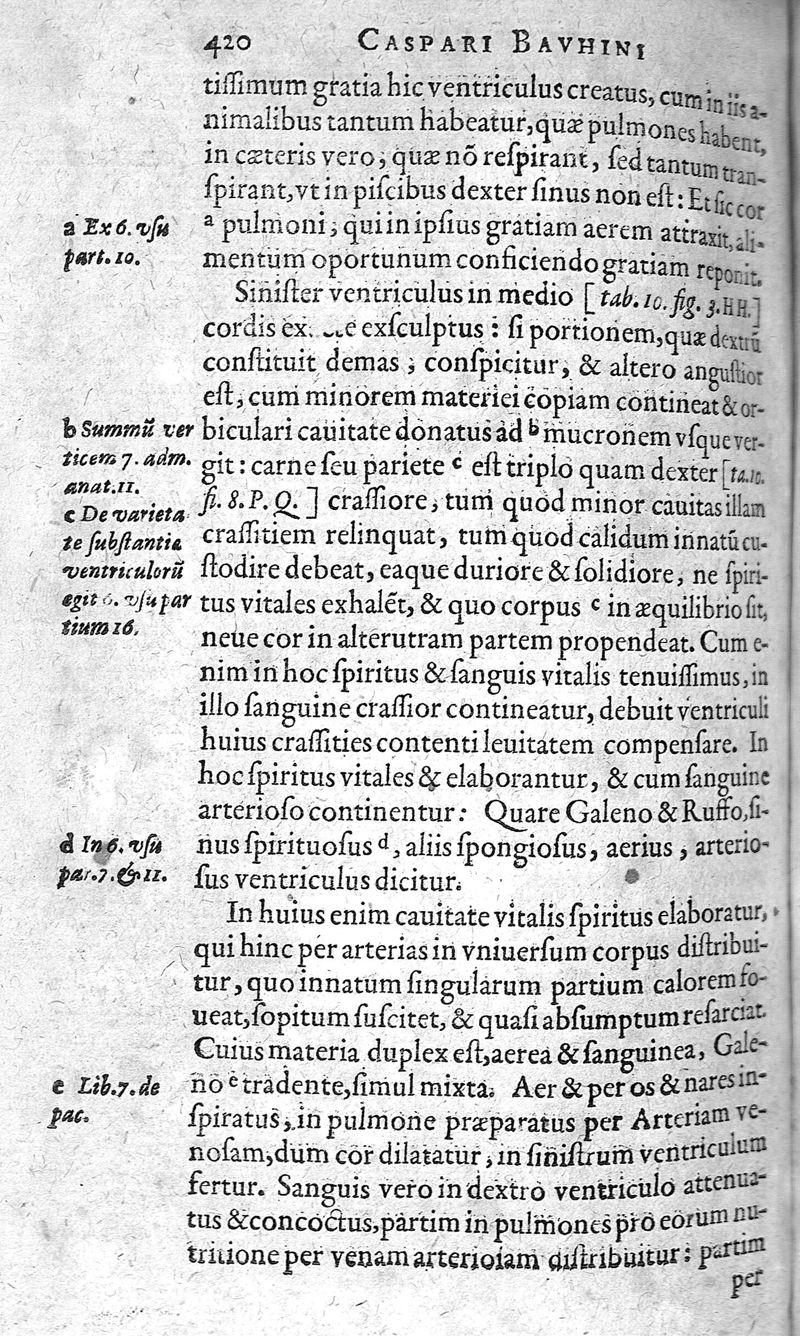 420 CASPARI BAVHINI
tiſſimum gratia hic ventriculus creatus, cum in iis a-
nimalibus tantum habeatur, quæ pulmones habent,
in cæteris vero, quæ nō reſpirant, ſed tantum tran-
ſpirant, vt in piſcibus dexter ſinus non eſt: Et ſic cor
a pulmoni, qui in ipſius gratiam aerem attraxit, ali-
mentum oportunum conficiendo gratiam reponit.
Siniſter ventriculus in medio [tab. 10. fig. 3. HH.]
cordis ex. exſculptus: ſi portionem, quæ dextrū
conſtituit demas, conſpicitur, & altero anguſtior
eſt, cum minorem materiei copiam contineat & or-
biculari cauitate donatus ad b mucronem vſque ver-
git: carne ſeu pariete c eſt triplo quam dexter [ta. 10.
fi. 8. P. Q.] craſſiore, tum quod minor cauitas illam
craſſitiem relinquat, tum quod calidum innatū cu-
ſtodire debeat, eaque duriore & ſolidiore, ne ſpiri-
tus vitales exhalēt, & quo corpus c in æquilibrio ſit,
neue cor in alterutram partem propendeat. Cum e-
nim in hoc ſpiritus & ſanguis vitalis tenuiſſimus, in
illo ſanguine craſſior contineatur, debuit ventriculi
huius craſſities contenti leuitatem compenſare. In
hoc ſpiritus vitales & elaborantur, & cum ſanguine
arterioſo continentur: Quare Galeno & Ruffo, ſi-
nus ſpirituoſus d, aliis ſpongioſus, aerius, arterio-
ſus ventriculus dicitur.
In huius enim cauitate vitalis ſpiritus elaboratur,
qui hinc per arterias in vniuerſum corpus diſtribui-
tur, quo innatum ſingularum partium calorem fo-
ueat, ſopitum ſuſcitet, & quaſi abſumptum reſarciat.
Cuius materia duplex eſt, aerea & ſanguinea, Gale-
no e tradente, ſimul mixta. Aer & per os & nares in-
ſpiratus, in pulmone præparatus per Arteriam ve-
noſam, dum cor dilatatur, in ſiniſtrum ventriculum
fertur. Sanguis vero in dextro ventriculo attenua-
tus & concoctus, partim in pulmones pro eorum nu-
tritione per venam arterioſam diſtribuitur: partim
per
a Ex 6. vſu
part. 10.
b Summū ver
ticem 7. adm.
anat. 11.
c De varieta
te ſubſtantiæ
ventriculorū
egit 6. vſu par
tium 16.
d In 6. vſu
par. 7. & 11.
e Lib. 7. de
pac.